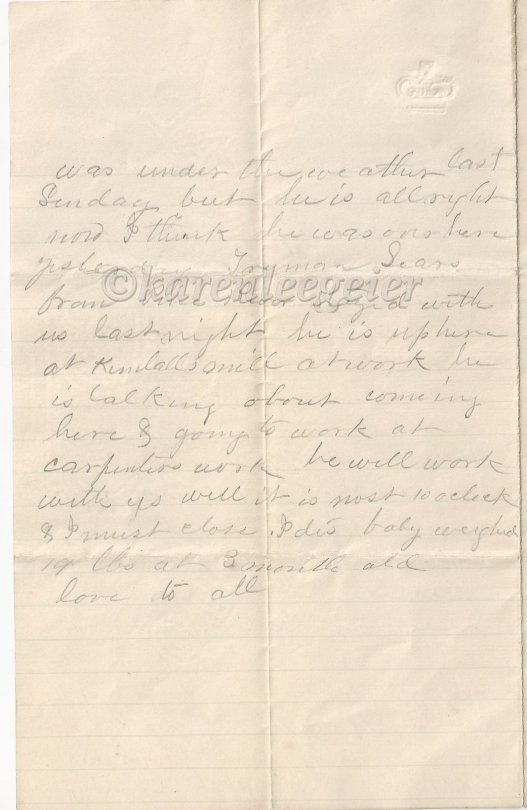 was under the weather last
Sunday but he is allright
now I think he was over here
yesterday Tryman Sears
from stayed with
us last night he is up here
at Kimballs mill at work he
is talking about coming
here & going to work at
carpenters work he will work
with us well it is most 10 oclock
& I must close. Idis baby weighed
19 lbs at 3 months old
love to all
©karenleegeier